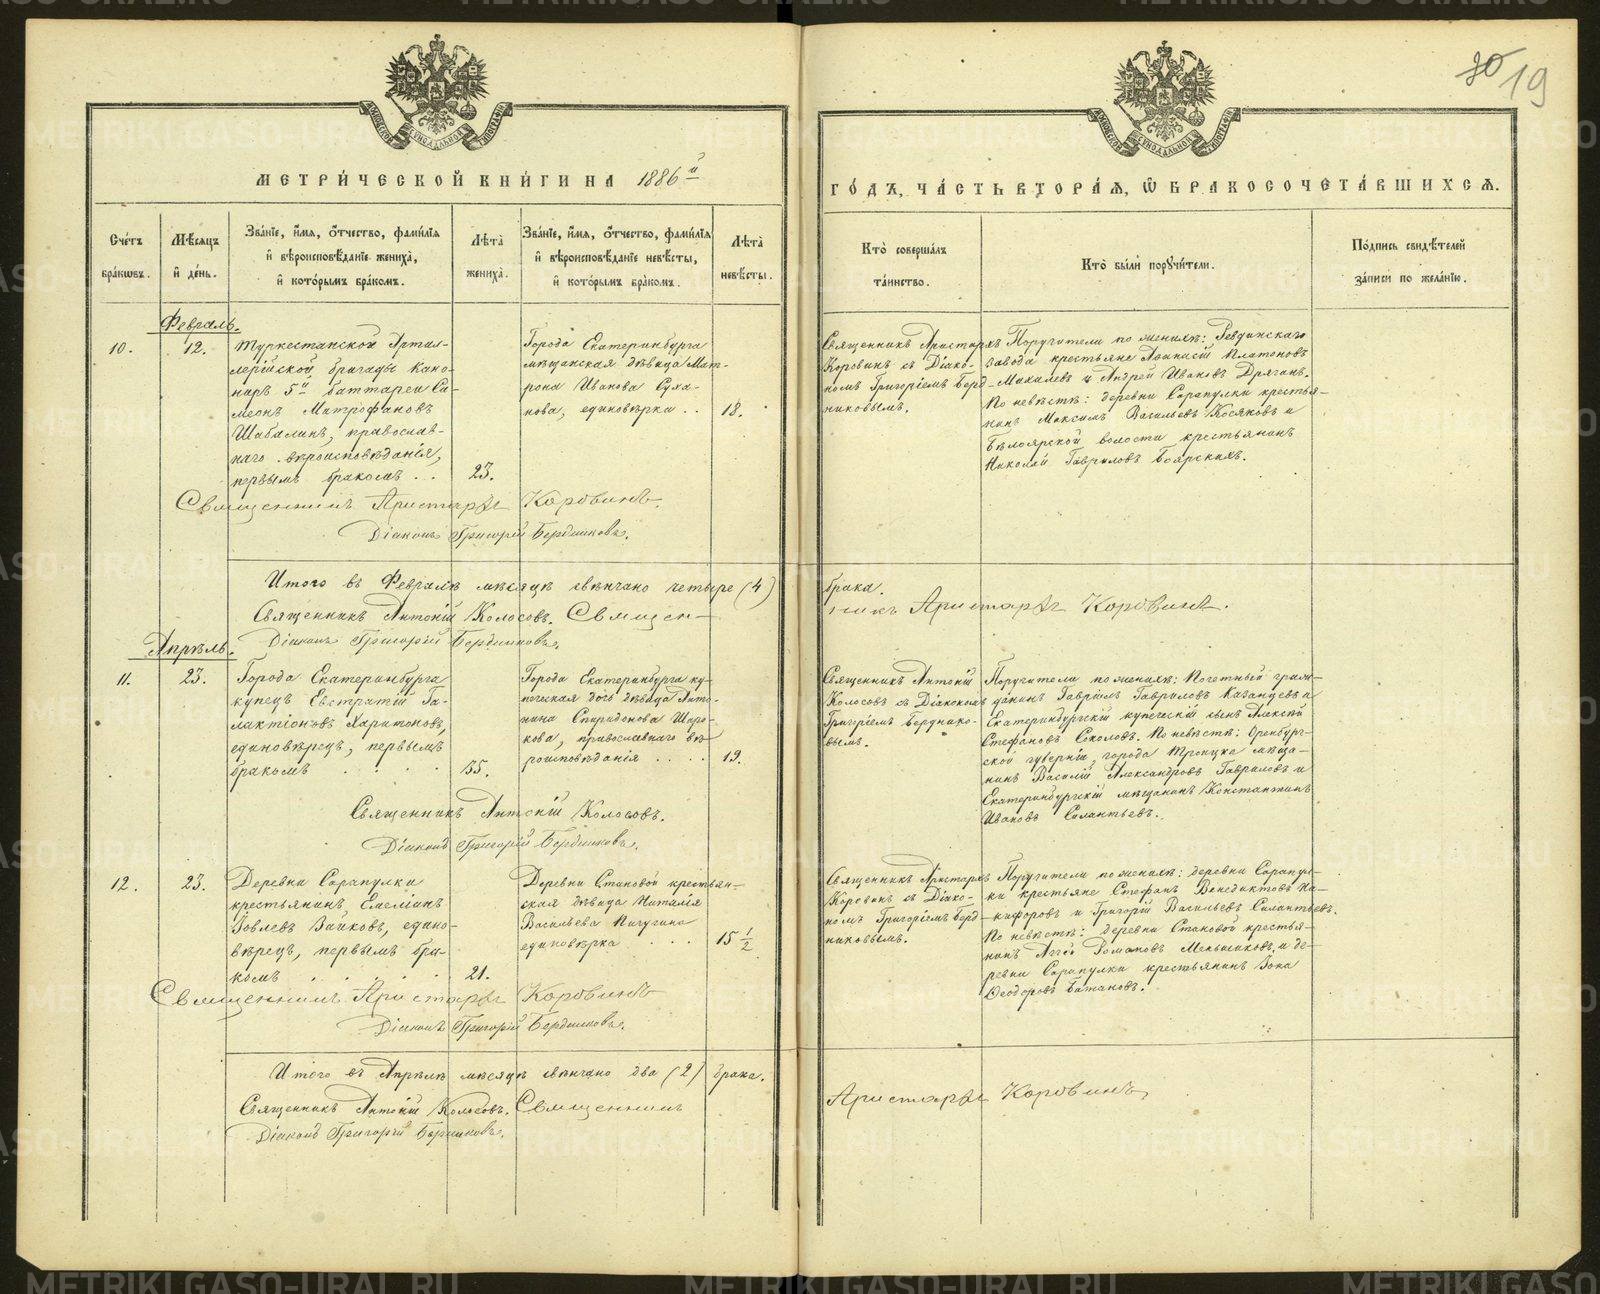 30 19
МЕТРИЧЕСКОЙ КНИГИ НА 1886й
ГОДЪ, ЧАСТЬ ВТОРАЯ, Ѡ БРАКОСОЧЕТАВШИХСЯ.
Счетъ браковъ.
Мѣсяцъ и день.
Званіе, имя, отчество, фамилія
и вѣроисповѣданіе жениха,
и которымъ бракомъ.
Лѣта
жениха.
Званіе, имя, отчество, фамилія
и вѣроисповѣданіе невѣсты,
и которымъ бракомъ.
Лѣта
невѣсты.
Кто совершалъ
таинство.
Кто были поручители.
Подпись свидѣтелей
записи по желанію.
Февраль.
10. 12.
Туркестанской Артил-
лерійской бригады Кано-
ниръ 5й баттареи Си-
меонъ Митрофановъ
Шабалинъ, православ-
наго вѣроисповѣданія,
первымъ бракомъ . . 23.
Города Екатеринбурга
мѣщанская дѣвица Мат-
рона Иванова Суха-
нова, единовѣрка . . 18.
Священникъ Аристархъ
Коровинъ съ Діако-
номъ Григоріемъ Берд-
никовымъ.
Поручители по женихѣ: Ревдинскаго
завода крестьяне Аѳанасій Платоновъ
Махалевъ и Андрей Ивановъ Дрягинъ.
По невѣстѣ: деревни Сарапулки крестья-
нинъ Максимъ Васильевъ Косяковъ и
Бѣлоярской волости крестьянинъ
Николай Гавриловъ Боярскихъ.
Священникъ Аристархъ Коровинъ.
Діаконъ Григорій Бердниковъ.
Итого въ Февралѣ мѣсяцѣ свѣнчано четыре (4) брака.
Священникъ Антоній Колосовъ. Священ-
никъ Аристархъ Коровинъ.
Діаконъ Григорій Бердниковъ.
Апрѣль.
11. 23.
Города Екатеринбурга
купецъ Евстратій Га-
лактіоновъ Харитоновъ,
единовѣрецъ, первымъ
бракомъ . . . . 35.
Города Екатеринбурга ку-
печеская дочь дѣвица Анто-
нина Спиридонова Широ-
кова, православнаго вѣ-
роисповѣданія . . . . 19.
Священникъ Антоній
Колосовъ съ Діакономъ
Григоріемъ Бердnико-
вымъ.
Поручители по женихѣ: Почетный граж-
данинъ Гавріилъ Гавриловъ Казанцевъ и
Екатеринбургскій купеческій сынъ Алексѣй
Стефановъ Соколовъ. По невѣстѣ: Оренбург-
ской губерніи, города Троицка мѣща-
нинъ Василій Александровъ Гавриловъ и
Екатеринбургскій мѣщанинъ Константинъ
Ивановъ Силантьевъ.
Священникъ Антоній Колосовъ.
Діаконъ Григорій Бердниковъ.
12. 23.
Деревни Сарапулки
крестьянинъ Емеліанъ
Іовлевъ Зайковъ, едино-
вѣрецъ, первымъ бра-
комъ . . . . . 21.
Деревни Становой крестьян-
ская дѣвица Наталія
Васильева Пичугина
единовѣрка . . . 15 1/2
Священникъ Аристархъ
Коровинъ съ Діако-
номъ Григоріемъ Берд-
никовымъ.
Поручители по женихѣ: деревни Сарапул-
ки крестьяне Стефанъ Венедиктовъ Ни-
кифоровъ и Григорій Васильевъ Силантьевъ.
По невѣстѣ: деревни Становой крестья-
нинъ Аггей Романовъ Меньшиковъ, и де-
ревни Сарапулки крестьянинъ Зока
Ѳеодоровъ Батановъ.
Священникъ Аристархъ Коровинъ
Діаконъ Григорій Бердниковъ.
Итого въ Апрѣлѣ мѣсяцѣ свѣнчано два (2) брака.
Священникъ Антоній Колосовъ. Священникъ
Аристархъ Коровинъ
Діаконъ Григорій Бердниковъ.
METRIKI.GASO-URAL.RU